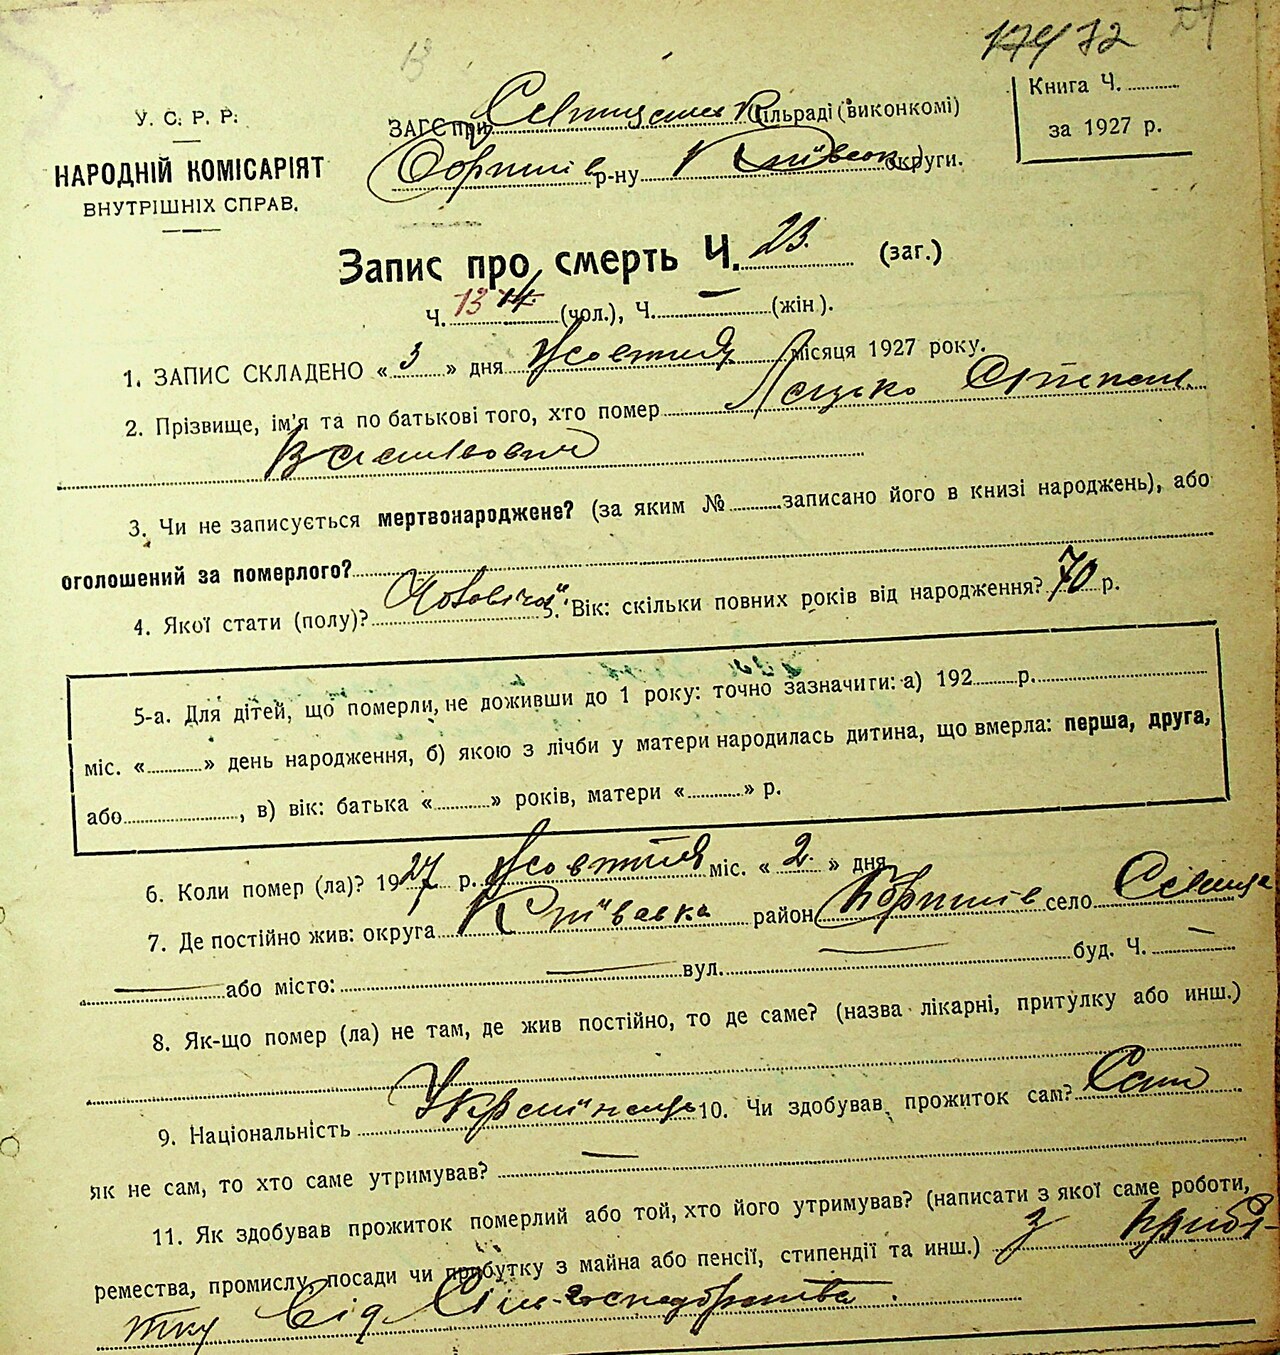 174 72 24
13
У. С. Р. Р.
НАРОДНІЙ КОМІСАРІЯТ
ВНУТРІШНІХ СПРАВ.
ЗАГС при Сільраді (виконкомі)
р-ну Київськ округи.
Книга Ч.
за 1927 р.
Запис про смерть Ч. 23. (заг.)
Ч. 13 14 (чол.), Ч. — (жін.).
1. ЗАПИС СКЛАДЕНО « 3 » дня Жовтня місяця 1927 року.
2. Прізвище, ім'я та по батькові того, хто помер Лецько Степан
Васильович
3. Чи не записується мертвонароджене? (за яким № записано його в книзі народжень), або
оголошений за померлого?
4. Якої стати (полу)? Чоловічої 5. Вік: скільки повних років від народження? 70 р.
5-а. Для дітей, що померли, не доживши до 1 року: точно зазначити: а) 192 р.
міс. « » день народження, б) якою з лічби у матери народилась дитина, що вмерла: перша, друга,
або , в) вік: батька « » років, матери « » р.
6. Коли помер (ла)? 1927 р. Жовтня міс. « 2 » дня
7. Де постійно жив: округа Київська район село
— або місто: — вул. — буд. Ч. —
8. Як-що помер (ла) не там, де жив постійно, то де саме? (назва лікарні, притулку або инш.)
9. Національність Українець 10. Чи здобував прожиток сам? Сам
як не сам, то хто саме утримував? —
11. Як здобував прожиток померлий або той, хто його утримував? (написати з якої саме роботи,
ремества, промислу, посади чи прибутку з майна або пенсії, стипендії та инш.) з прибу-
тку від Сіль-господарства.